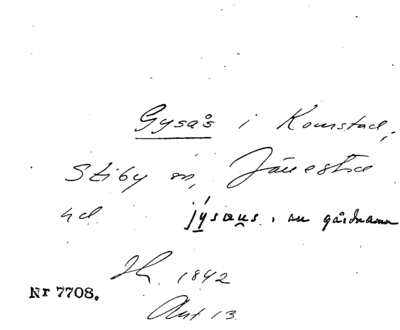 Gysås i Komstad,
Stiby sn, Järrestad
hd jýsaus. nu gårdnamn
1842
Nr 7708.
Ant 13.